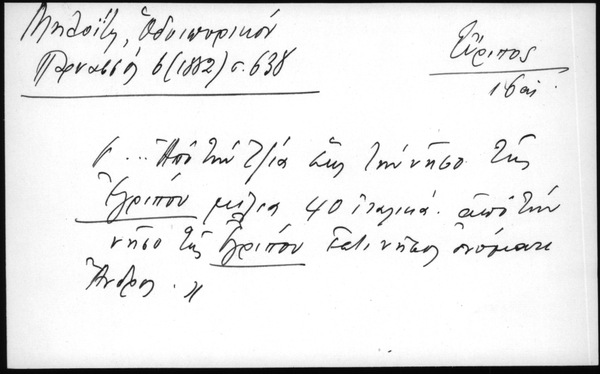 Μηλοΐτη, Ὁδοιπορικόν
Παρνασσός 6 (1882) σ. 638
Εὔριπος
16 αἰ.
"... Ἀπὸ τὴν Τζιά ἕως τὴν νῆσο τῆς
Ἐγρίπου μίλια 40 ἰταλικά. ἀπὸ τὴν
νῆσο τῆς Ἐγρίπου ἔστι νῆσος ὀνόματι
Ἄνδρος."